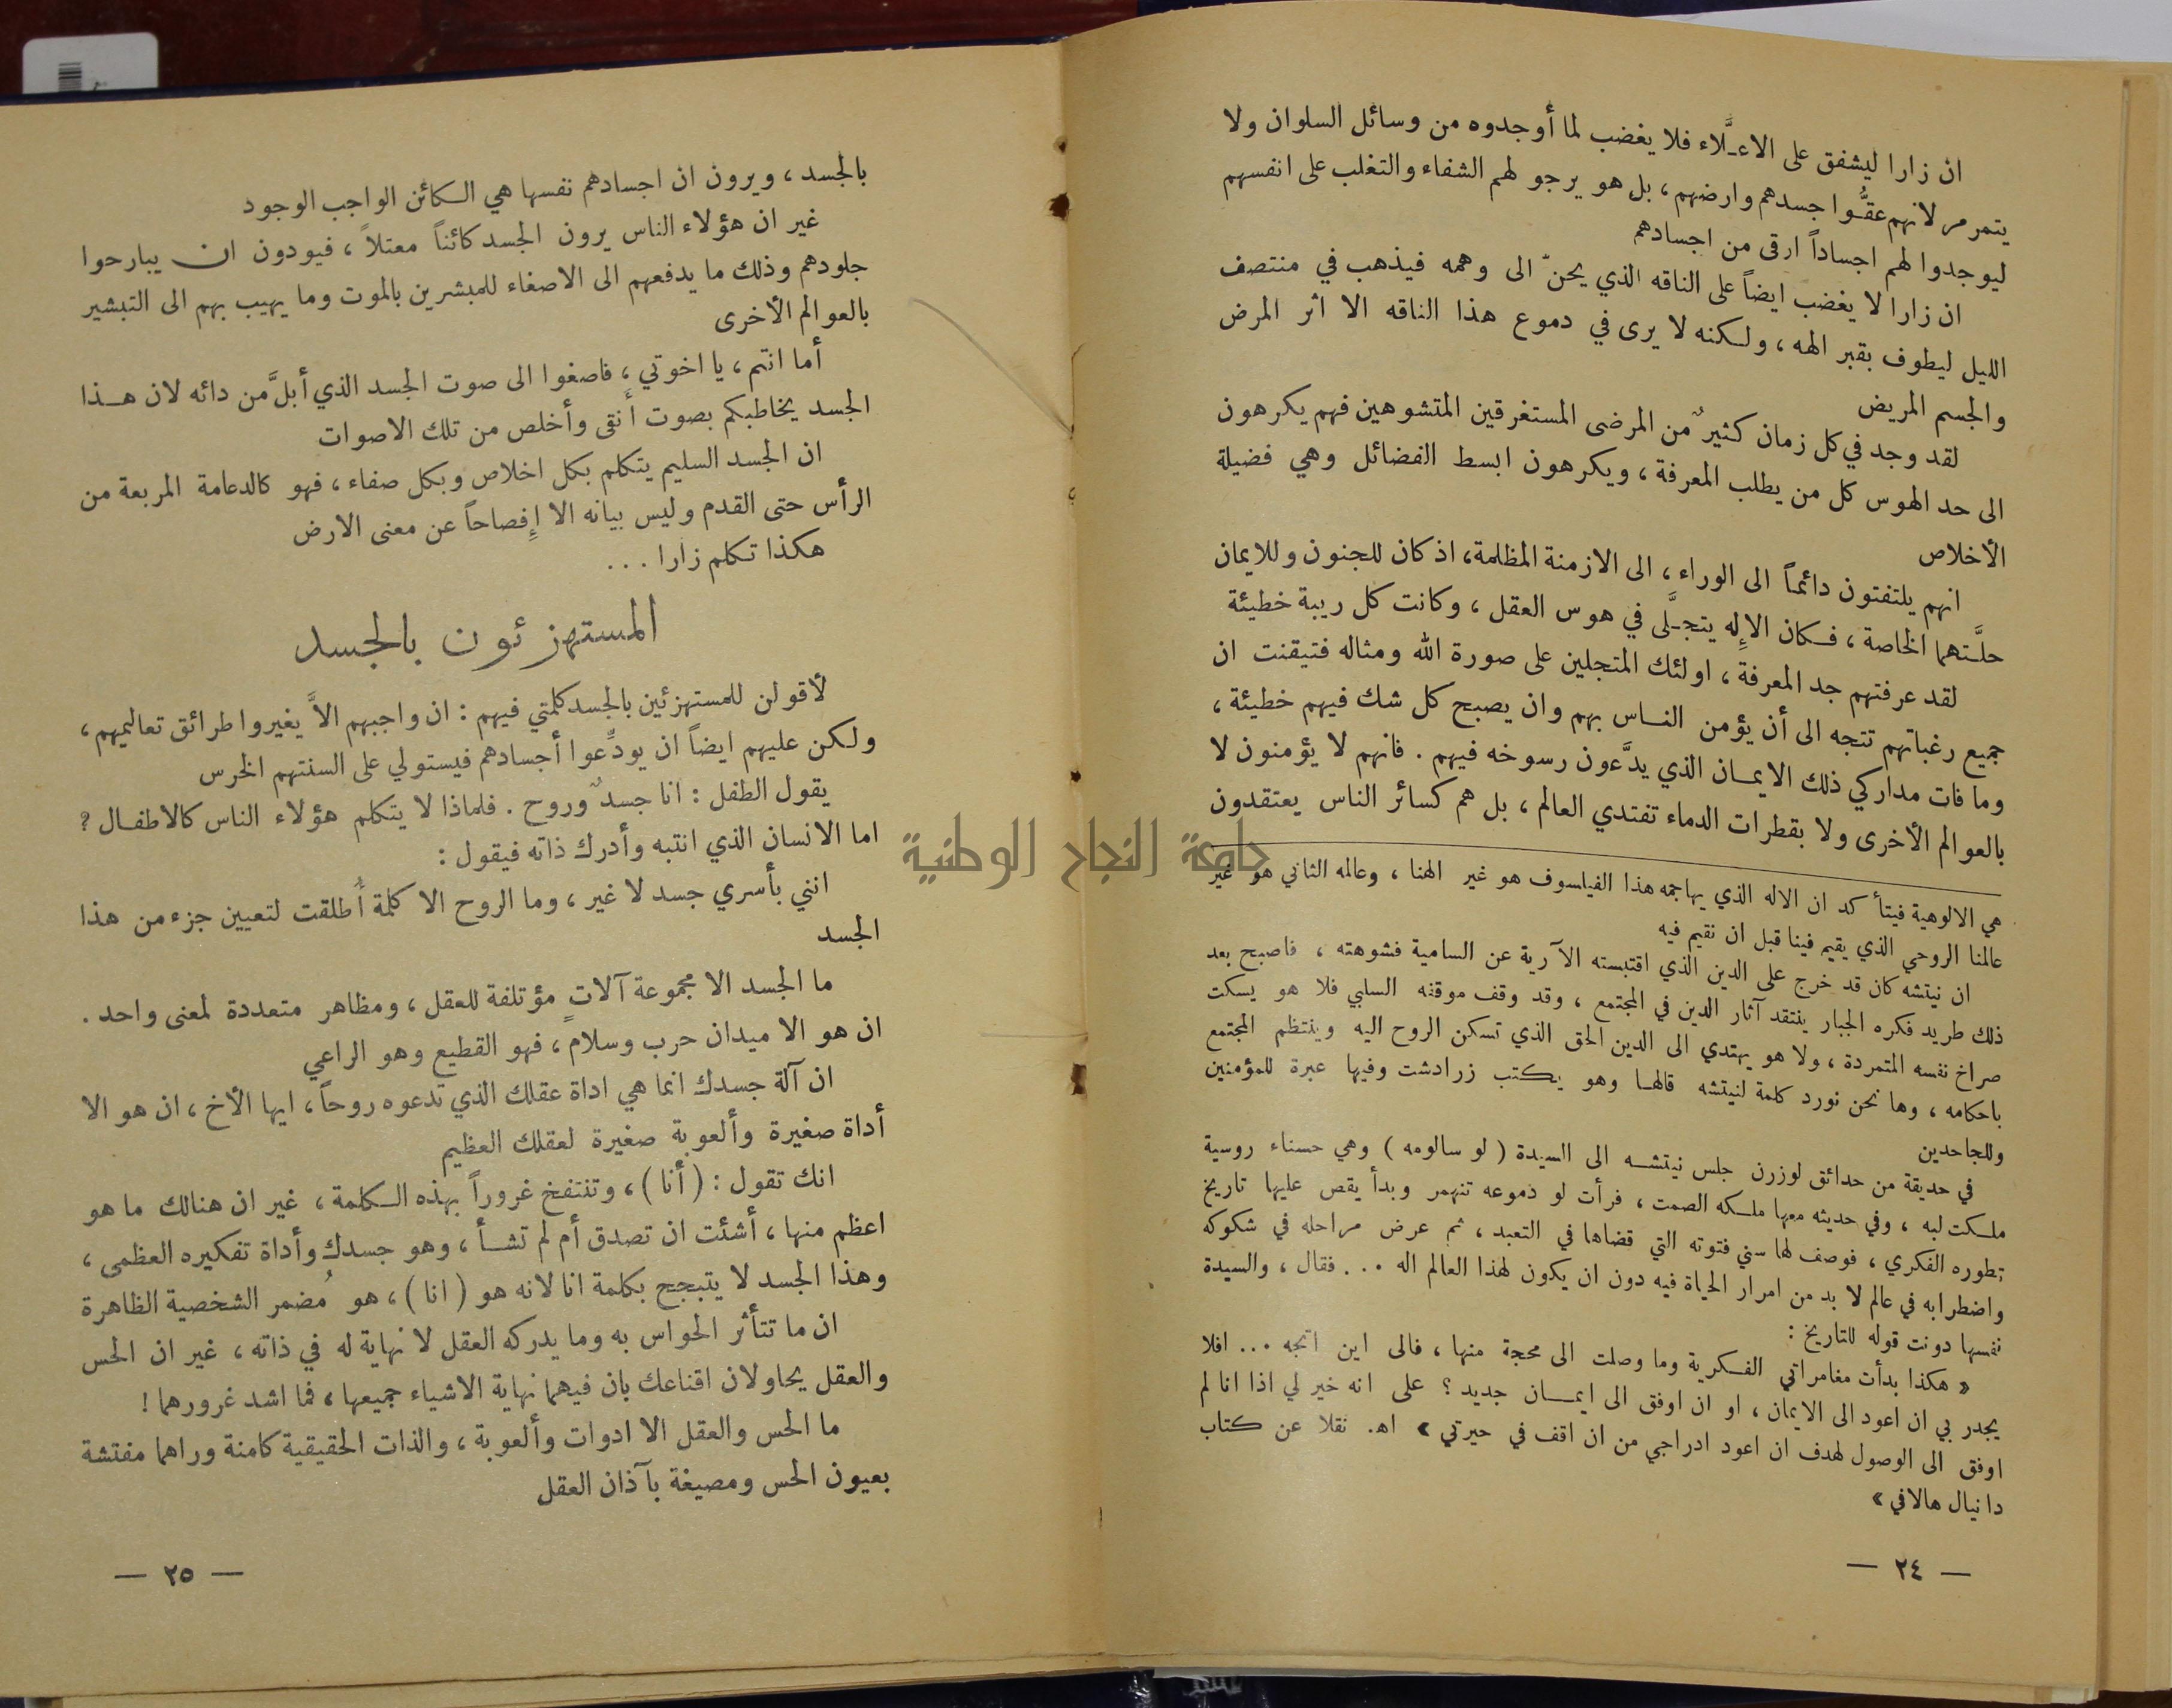 ان زارا ليشفق على الاعـلَّاء فلا يغضب لما أوجدوه من وسائل السلوان ولا
يتمرمر لانهم عقُّوا جسدهم وارضهم، بل هو يرجو لهم الشفاء والتغلب على انفسهم
ليوجدوا لهم اجساداً ارقى من اجسادهم
ان زارا لا يغضب ايضاً على الناقه الذي يحنّ الى وهمه فيذهب في منتصف
الليل ليطوف بقبر الهه، ولكنه لا يرى في دموع هذا الناقه الا اثر المرض
والجسم المريض
لقد وجد في كل زمان كثيرٌ من المرضى المستغرقين المتشوهين فهم يكرهون
الى حد الهوس كل من يطلب المعرفة، ويكرهون ابسط الفضائل وهي فضيلة
الأخلاص
انهم يلتفتون دائماً الى الوراء، الى الازمنة المظلمة، اذ كان للجنون وللايمان
حلَّتهما الخاصة، فكان الإِله يتجـلَّى في هوس العقل، وكانت كل ريبة خطيئة
لقد عرفتهم جد المعرفة، اولئك المتجلين على صورة الله ومثاله فتيقنت ان
جميع رغباتهم تتجه الى أن يؤمن الناس بهم وان يصبح كل شك فيهم خطيئة،
وما فات مداركي ذلك الايمان الذي يدَّعون رسوخه فيهم. فانهم لا يؤمنون لا
بالعوالم الأخرى ولا بقطرات الدماء تفتدي العالم، بل هم كسائر الناس يعتقدون
هي الالوهية فيتأكد ان الاله الذي يهاجمه هذا الفيلسوف هو غير الهنا، وعالمه الثاني هو غير
عالمنا الروحي الذي يقيم فينا قبل ان نقيم فيه
ان نيتشه كان قد خرج على الدين الذي اقتبسته الآرية عن السامية فشوهته، فاصبح بعد
ذلك طريد فكره الجبار ينتقد آثار الدين في المجتمع، وقد وقف موقفه السلبي فلا هو يسكت
صراخ نفسه المتمردة، ولا هو يهتدي الى الدين الحق الذي تسكن الروح اليه وينتظم المجتمع
باحكامه، وها نحن نورد كلمة لنيتشه قالها وهو يكتب زرادشت وفيها عبرة للمؤمنين
وللجاحدين
في حديقة من حدائق لوزرن جلس نيتشه الى السيدة (لو سالومه) وهي حسناء روسية
ملكت لبه، وفي حديثه معها ملكه الصمت، فرأت لو دموعه تنهمر وبدأ يقص عليها تاريخ
تطوره الفكري، فوصف لها سني فتوته التي قضاها في التعبد، ثم عرض مراحله في شكوكه
واضطرابه في عالم لا بد من امرار الحياة فيه دون ان يكون لهذا العالم اله ... فقال، والسيدة
نفسها دونت قوله للتاريخ:
« هكذا بدأت مغامراتي الفكرية وما وصلت الى محجة منها، فالى اين اتجه ... افلا
يجدر بي ان اعود الى الايمان، او ان اوفق الى ايمان جديد؟ على انه خير لي اذا انا لم
اوفق الى الوصول لهدف ان اعود ادراجي من ان اقف في حيرتي » اه. نقلا عن كتاب
دانيال هالافي »
— ٢٤ —
بالجسد، ويرون ان اجسادهم نفسها هي الكائن الواجب الوجود
غير ان هؤلاء الناس يرون الجسد كائناً معتلاً، فيودون ان يبارحوا
جلودهم وذلك ما يدفعهم الى الاصغاء للمبشرين بالموت وما يهيب بهم الى التبشير
بالعوالم الأخرى
أما انتم، يا اخوتي، فاصغوا الى صوت الجسد الذي أبلَّ من دائه لان هذا
الجسد يخاطبكم بصوت أنقى وأخلص من تلك الاصوات
ان الجسد السليم يتكلم بكل اخلاص وبكل صفاء، فهو كالدعامة المربعة من
الرأس حتى القدم وليس بيانه الا إِفصاحاً عن معنى الارض
هكذا تكلم زارا ...
المستهزئون بالجسد
لأقولن للمستهزئين بالجسد كلمتي فيهم: ان واجبهم الاَّ يغيروا طرائق تعاليمهم،
ولكن عليهم ايضاً ان يودِّعوا أجسادهم فيستولي على السنتهم الخرس
يقول الطفل: انا جسدٌ وروح. فلماذا لا يتكلم هؤلاء الناس كالاطفال؟
اما الانسان الذي انتبه وأدرك ذاته فيقول:
انني بأسري جسد لا غير، وما الروح الا كلمة أُطلقت لتعيين جزء من هذا
الجسد
ما الجسد الا مجموعة آلاتٍ مؤتلفة للعقل، ومظاهر متعددة لمعنى واحد.
ان هو الا ميدان حرب وسلام، فهو القطيع وهو الراعي
ان آلة جسدك انما هي اداة عقلك الذي تدعوه روحاً، ايها الأخ، ان هو الا
أداة صغيرة وألعوبة صغيرة لعقلك العظيم
انك تقول: (أنا)، وتنتفخ غروراً بهذه الكلمة، غير ان هنالك ما هو
اعظم منها، أشئت ان تصدق أم لم تشأ، وهو جسدك وأداة تفكيره العظمى،
وهذا الجسد لا يتبجح بكلمة انا لانه هو (انا)، هو مُضمر الشخصية الظاهرة
ان ما تتأثر الحواس به وما يدركه العقل لا نهاية له في ذاته، غير ان الحس
والعقل يحاولان اقناعك بان فيهما نهاية الاشياء جميعها، فما اشد غرورهما!
ما الحس والعقل الا ادوات وألعوبة، والذات الحقيقية كامنة وراهما مفتشة
بعيون الحس ومصيغة بآذان العقل
— ٢٥ —
جامعة النجاح الوطنية